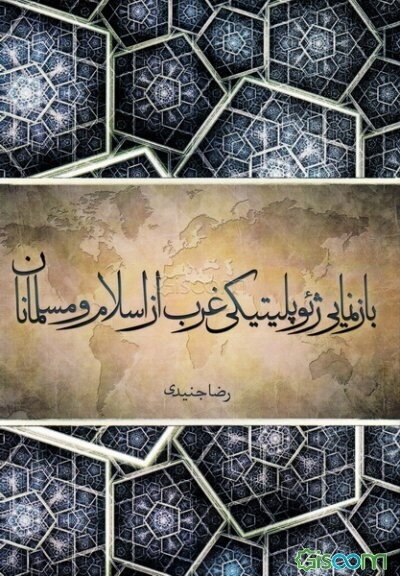 بازنمایی ژئوپلیتیکی غرب از اسلام و مسلمانان
رضا جنیدی
Giscom